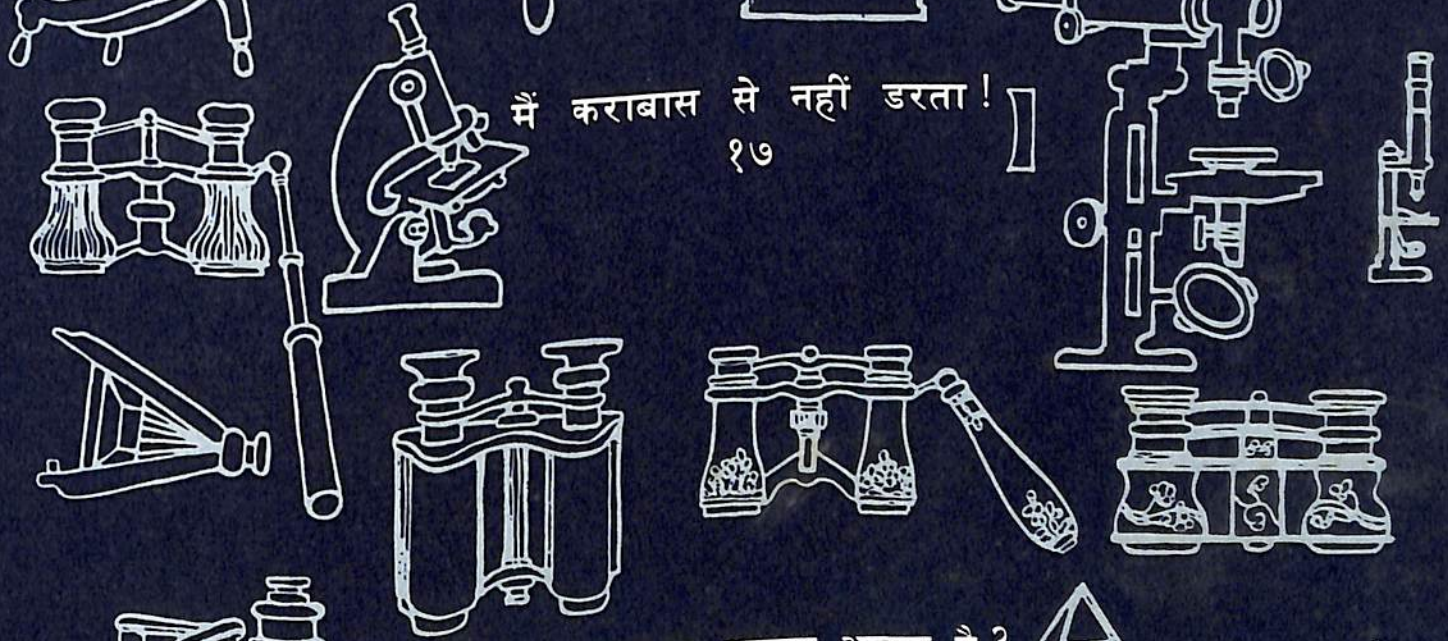 मैं कराबास से नहीं डरता!
१७
है?